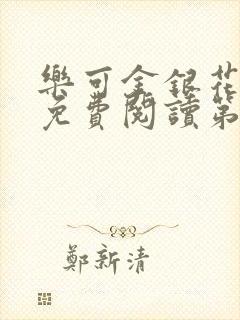 樂可金銀花
免費閱讀第
鄭新清